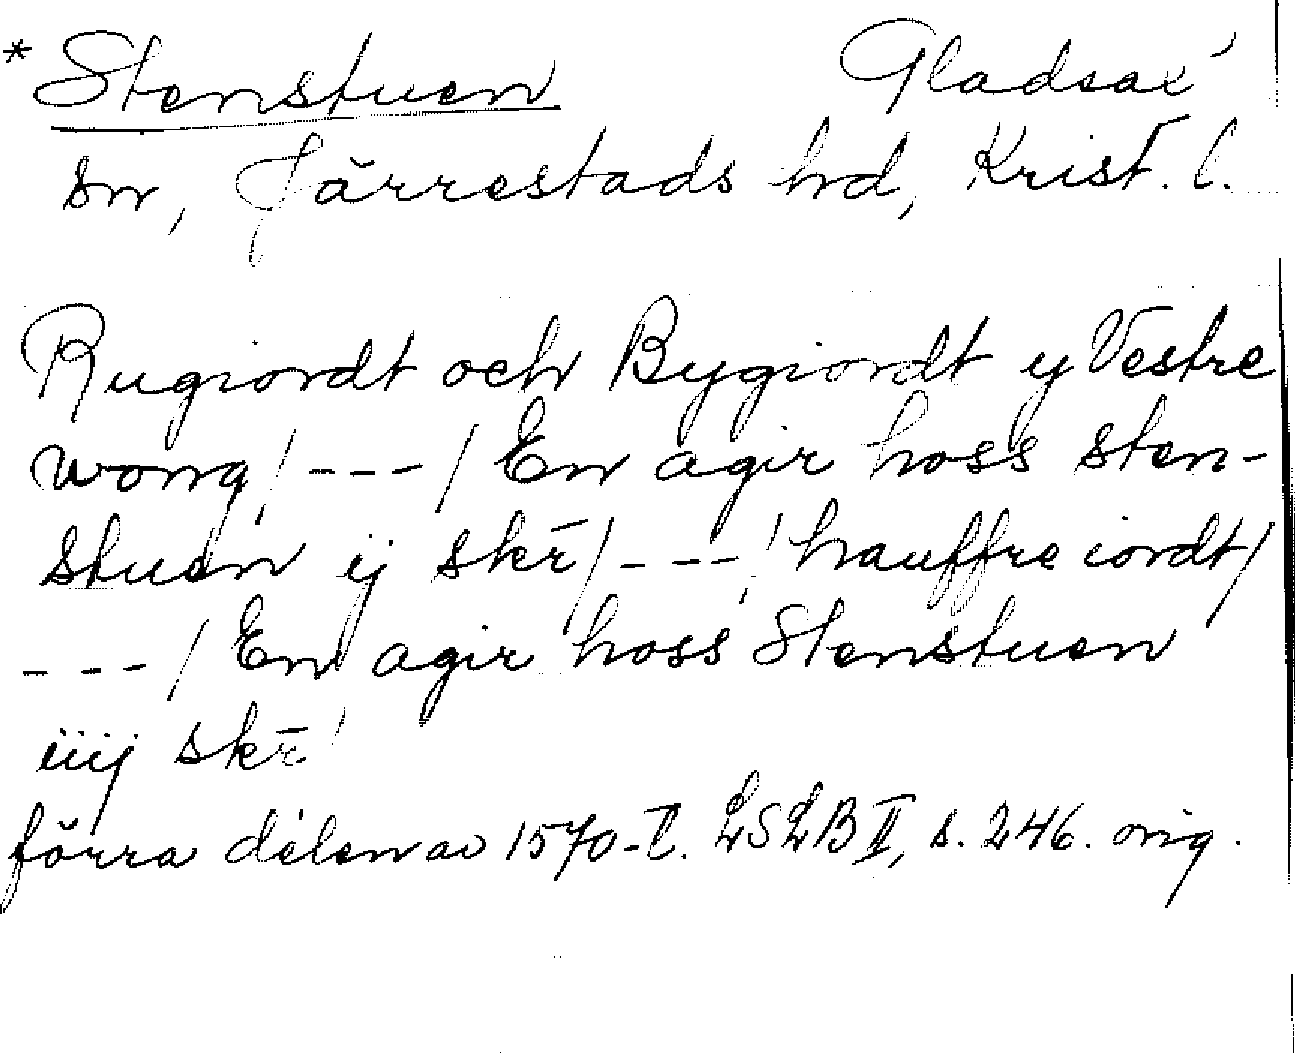 * Stenstuen Gladsax
sn, Järrestads hd, Krist. l.
Rugiordt och Bygiordt y Vestre
wong/---/ En agir hoss sten-
stuen ij skr̄/---/ hauffre iordt/
---/ En agir hoss Stenstuen
iiij skr̄
förra delen av 1570-t. LSLB II, s. 246. orig.